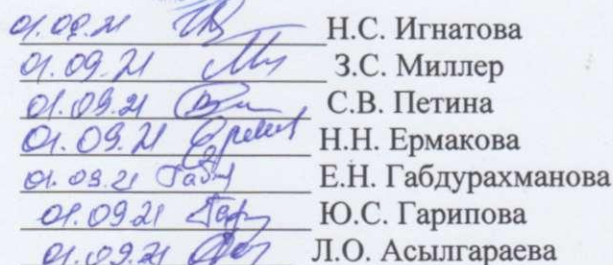 01.09.21 Н.С. Игнатова
01.09.21 З.С. Миллер
01.09.21 С.В. Петина
01.09.21 Н.Н. Ермакова
01.09.21 Е.Н. Габдурахманова
01.09.21 Ю.С. Гарипова
01.09.21 Л.О. Асылгараева